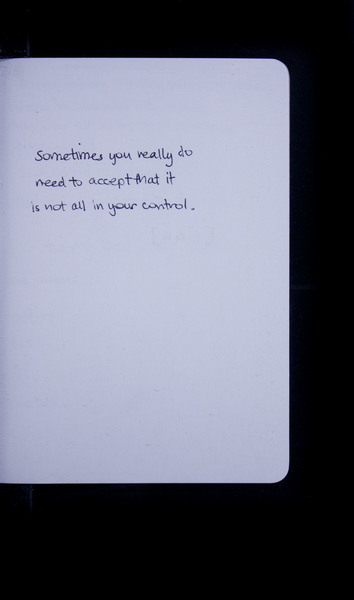 Sometimes you really do
need to accept that it
is not all in your control.